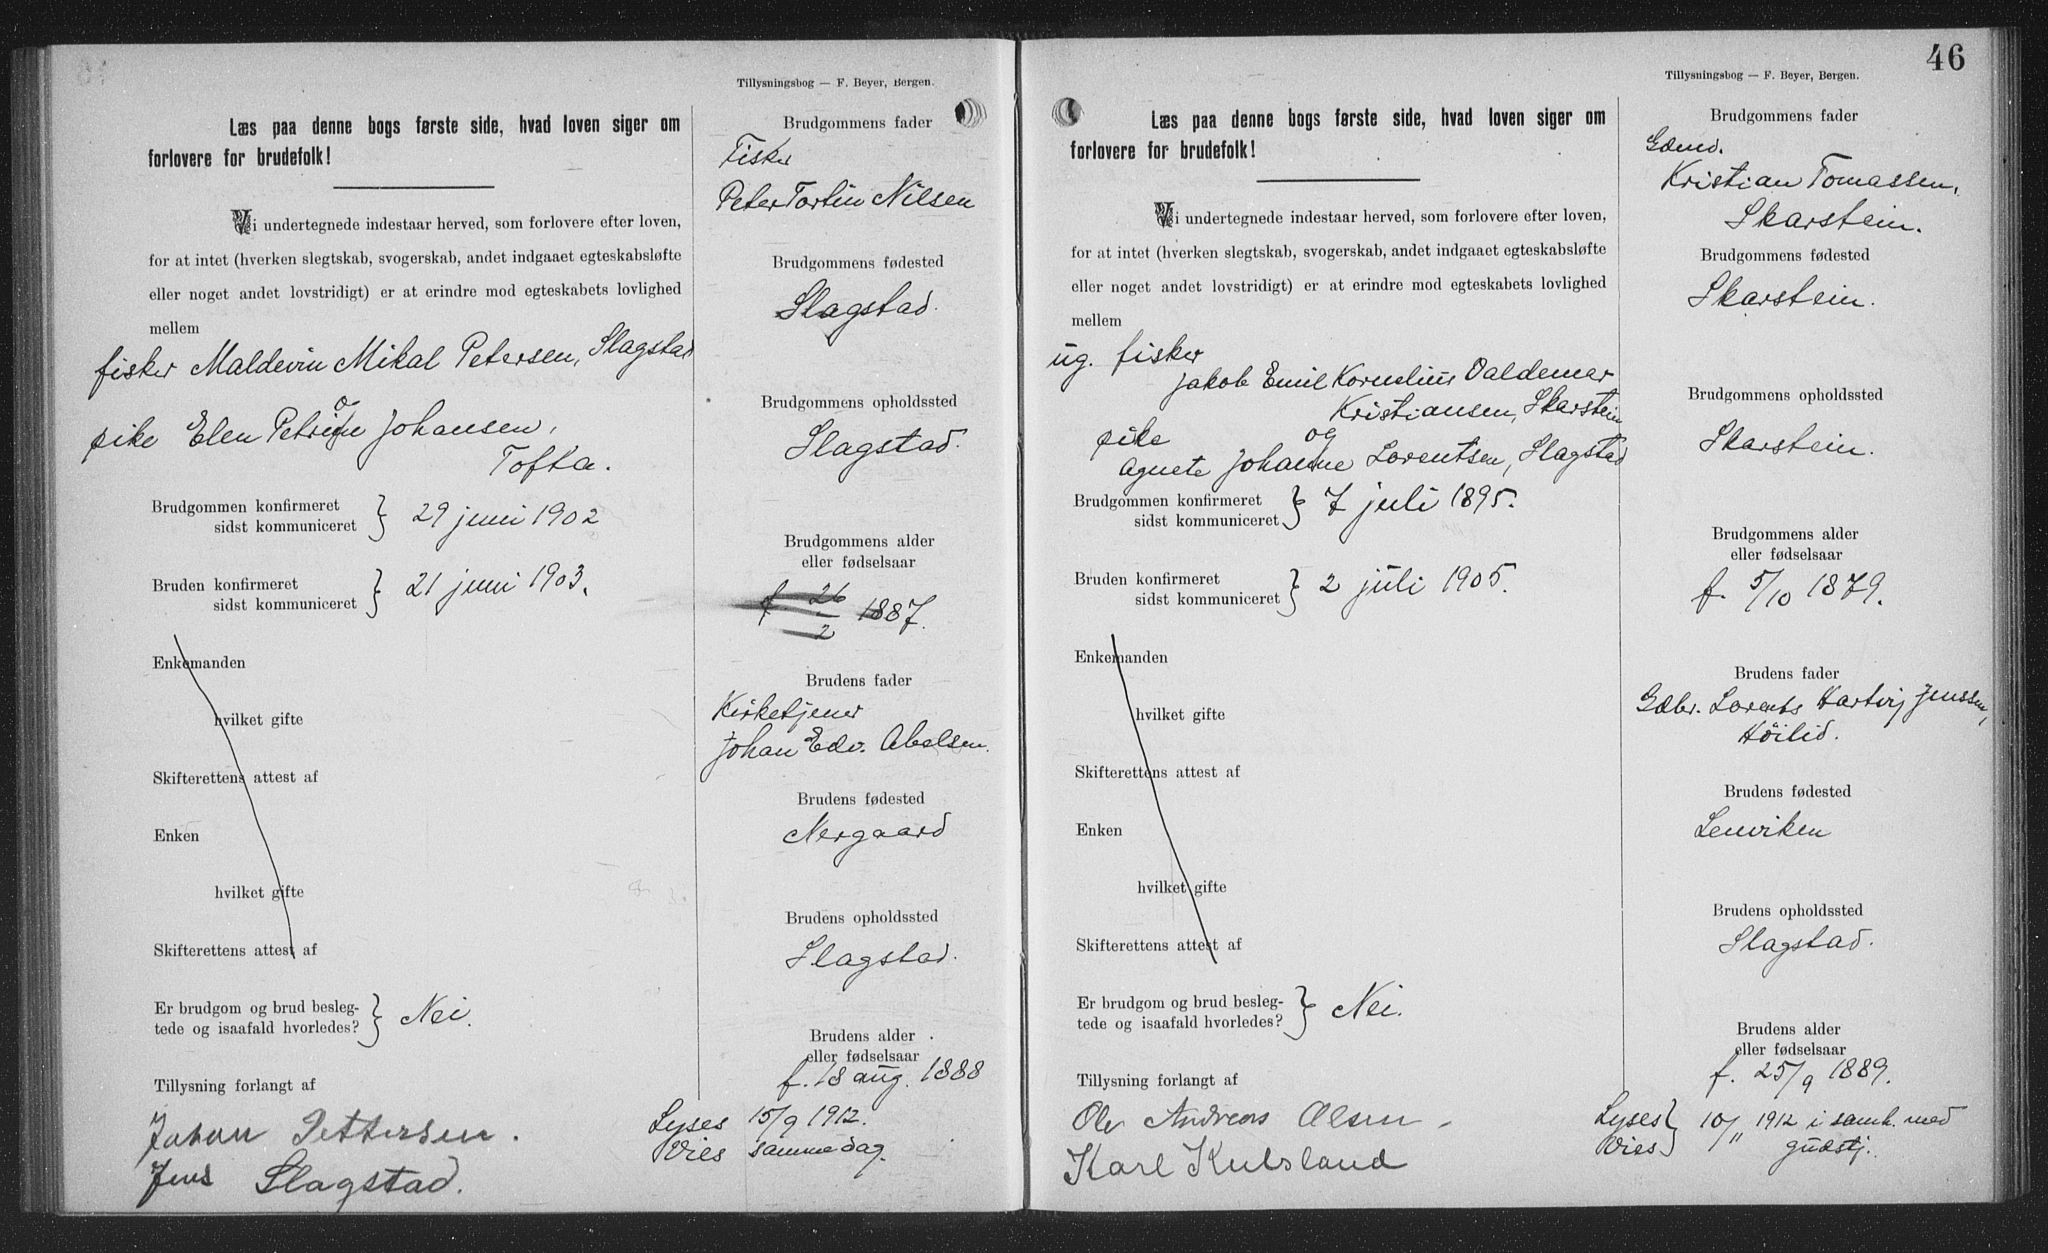 Tillysningsbog — F. Beyer, Bergen.
Læs paa denne bogs første side, hvad loven siger om
forlovere for brudefolk!
Vi undertegnede indestaar herved, som forlovere efter loven,
for at intet (hverken slegtskab, svogerskab, andet indgaaet egteskabsløfte
eller noget andet lovstridigt) er at erindre mod egteskabets lovlighed
mellem
fisker Maldevin Mikal Petersen, Slagstad
og
pike Elen Petrine Johansen,
Tofta.
Brudgommen konfirmeret
sidst kommuniceret } 29 juni 1902
Bruden konfirmeret
sidst kommuniceret } 21 juni 1903.
Enkemanden
hvilket gifte
Skifterettens attest af
Enken
hvilket gifte
Skifterettens attest af
Er brudgom og brud besleg-
tede og isaafald hvorledes? } Nei.
Tillysning forlangt af
Johan Pettersen.
Jens Slagstad.
Brudgommens fader
Fisker
Peter Tortin Nilsen
Brudgommens fødested
Slagstad.
Brudgommens opholdssted
Slagstad.
Brudgommens alder
eller fødselsaar
f. 26/2 1887.
Brudens fader
Kirketjener
Johan Edv. Abelsen.
Brudens fødested
Nergaard
Brudens opholdssted
Slagstad.
Brudens alder
eller fødselsaar
f. 18 aug. 1888
Lyses 15/9 1912.
Vies samme dag.
46
Tillysningsbog — F. Beyer, Bergen.
Læs paa denne bogs første side, hvad loven siger om
forlovere for brudefolk!
Vi undertegnede indestaar herved, som forlovere efter loven,
for at intet (hverken slegtskab, svogerskab, andet indgaaet egteskabsløfte
eller noget andet lovstridigt) er at erindre mod egteskabets lovlighed
mellem
ug. fisker
Jakob Emil Kornelius Valdemar
Kristiansen, Skarstein
pike og
Agnete Johanne Lorentsen, Slagstad
Brudgommen konfirmeret
sidst kommuniceret } 7 juli 1895.
Bruden konfirmeret
sidst kommuniceret } 2 juli 1905.
Enkemanden
hvilket gifte
Skifterettens attest af
Enken
hvilket gifte
Skifterettens attest af
Er brudgom og brud besleg-
tede og isaafald hvorledes? } Nei.
Tillysning forlangt af
Ole Andreas Olsen
Karl Kulsland
Brudgommens fader
Gdmd.
Kristian Tomassen,
Skarstein.
Brudgommens fødested
Skarstein.
Brudgommens opholdssted
Skarstein.
Brudgommens alder
eller fødselsaar
f. 5/10 1879.
Brudens fader
Gdbr. Lorents Hartvig Jenssen,
Høilid.
Brudens fødested
Lenviken
Brudens opholdssted
Slagstad.
Brudens alder
eller fødselsaar
f. 25/9 1889.
Lyses } 10/11 1912 i samb. med
Vies } gudstj.